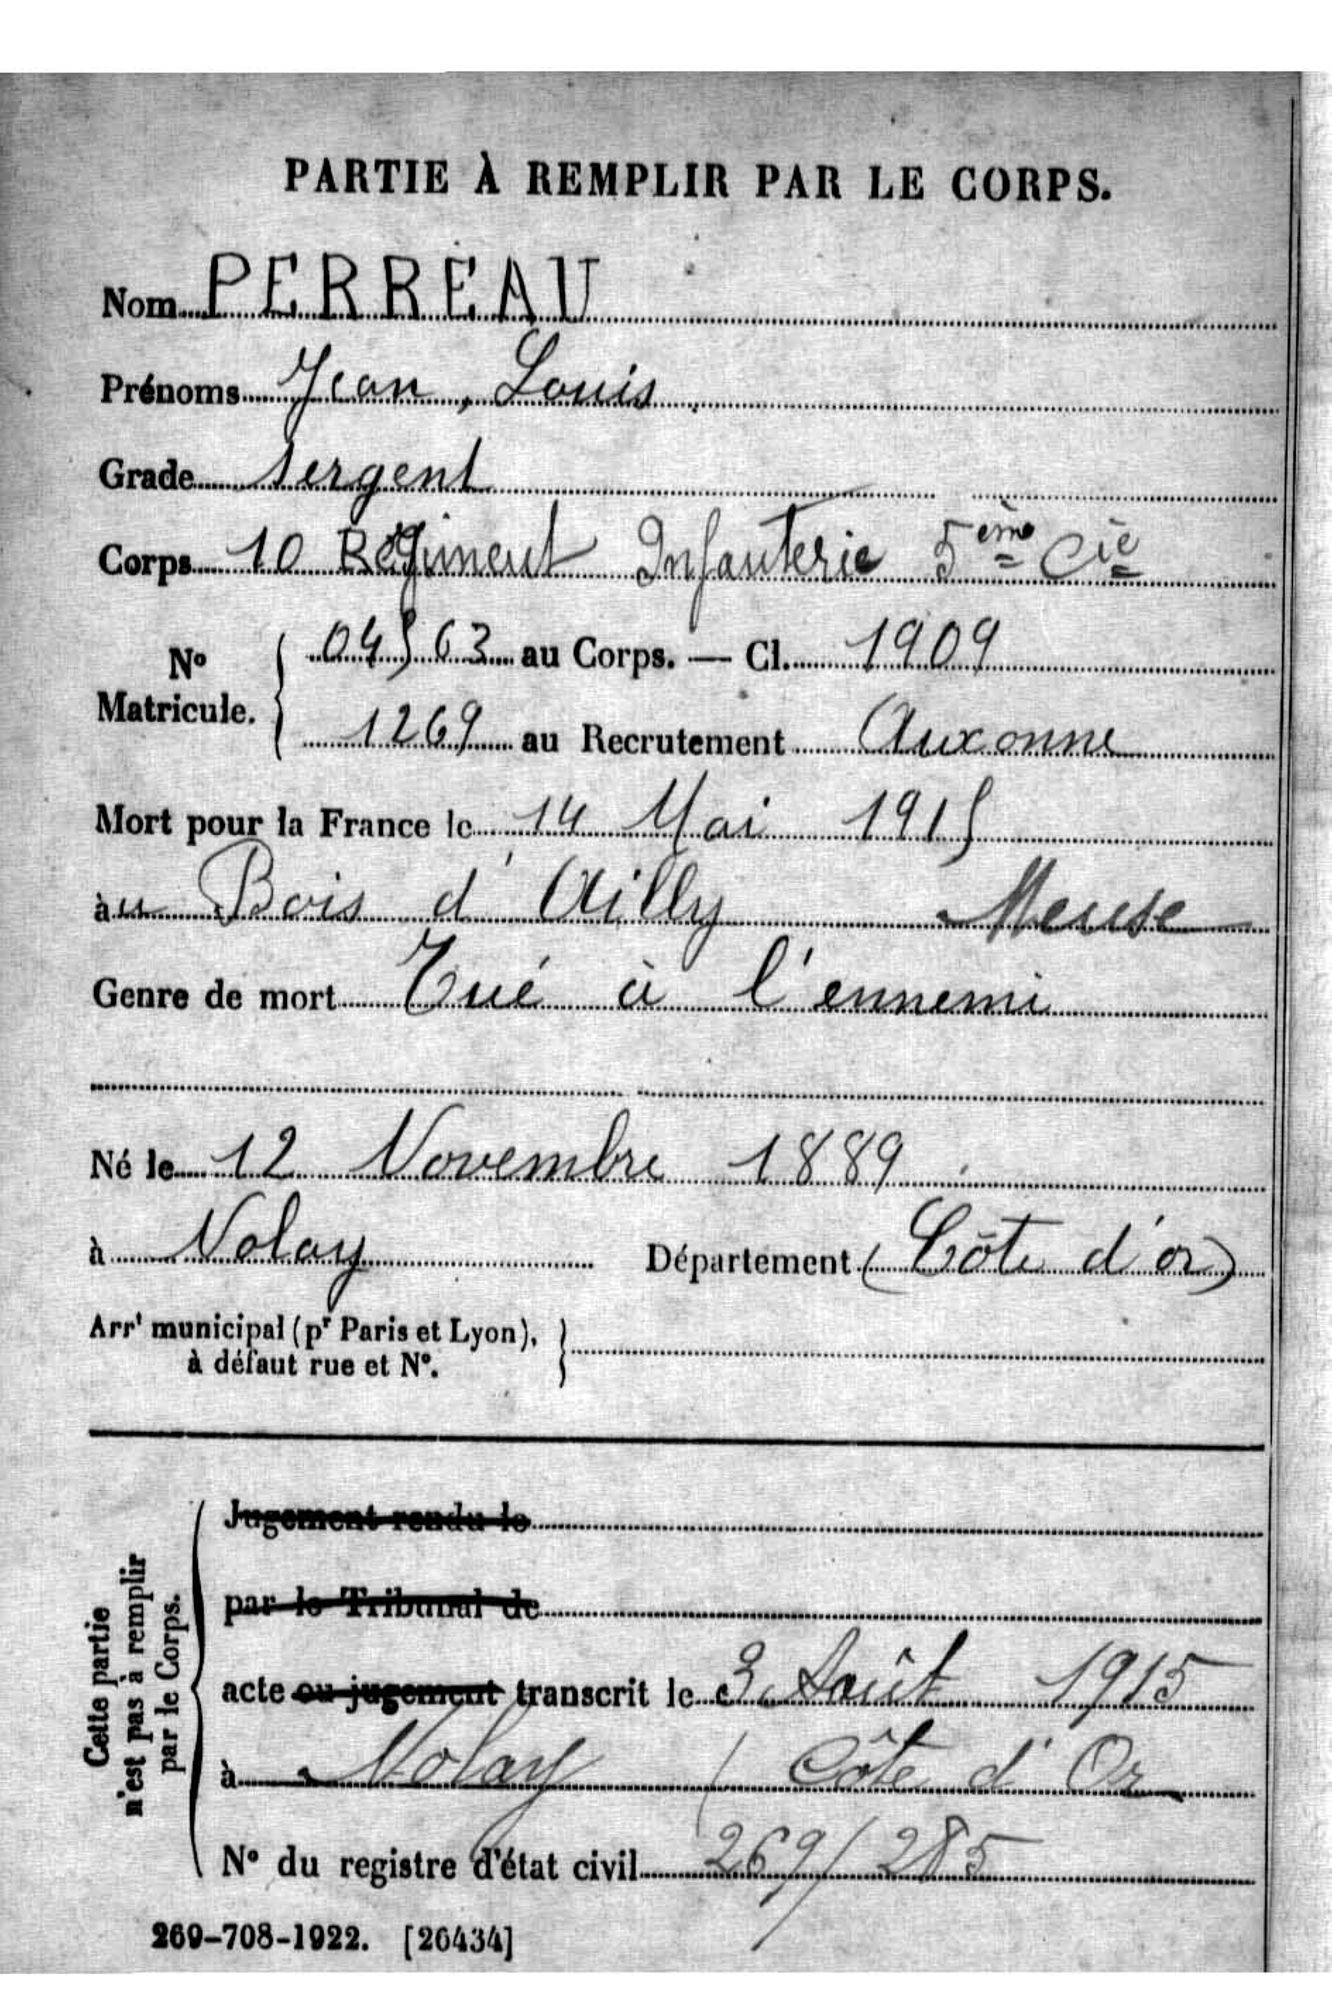 PARTIE À REMPLIR PAR LE CORPS.
Nom PERREAU
Prénoms Jean, Louis
Grade Sergent
Corps 10 Régiment Infanterie 5ème Cie
No Matricule. 04563 au Corps. — Cl. 1909
1269 au Recrutement Auxonne
Mort pour la France le 14 Mai 1915
àu Bois d'Ailly Meuse
Genre de mort Tué à l'ennemi
Né le 12 Novembre 1889
à Nolay Département (Côte d'or)
Arrt municipal (pr Paris et Lyon),
à défaut rue et No.
Cette partie
n'est pas à remplir
par le Corps.
Jugement rendu le
par le Tribunal de
acte ou jugement transcrit le 3 Août 1915
à Nolay (Côte d'Or
No du registre d'état civil 269/285
269-708-1922. [26434]